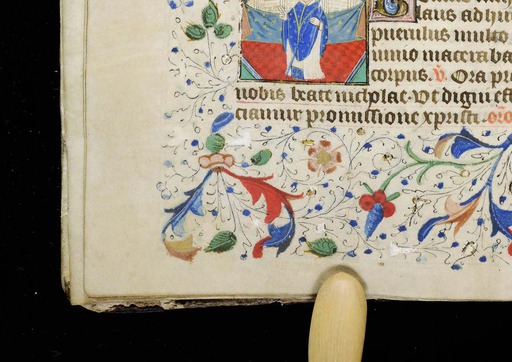 laus ad hu
puerulus multo
iunio maceraba
corpus. v. Ora pro
nobis beate nicholae. Ut digni effi
ciamur promissione xpristi. oro